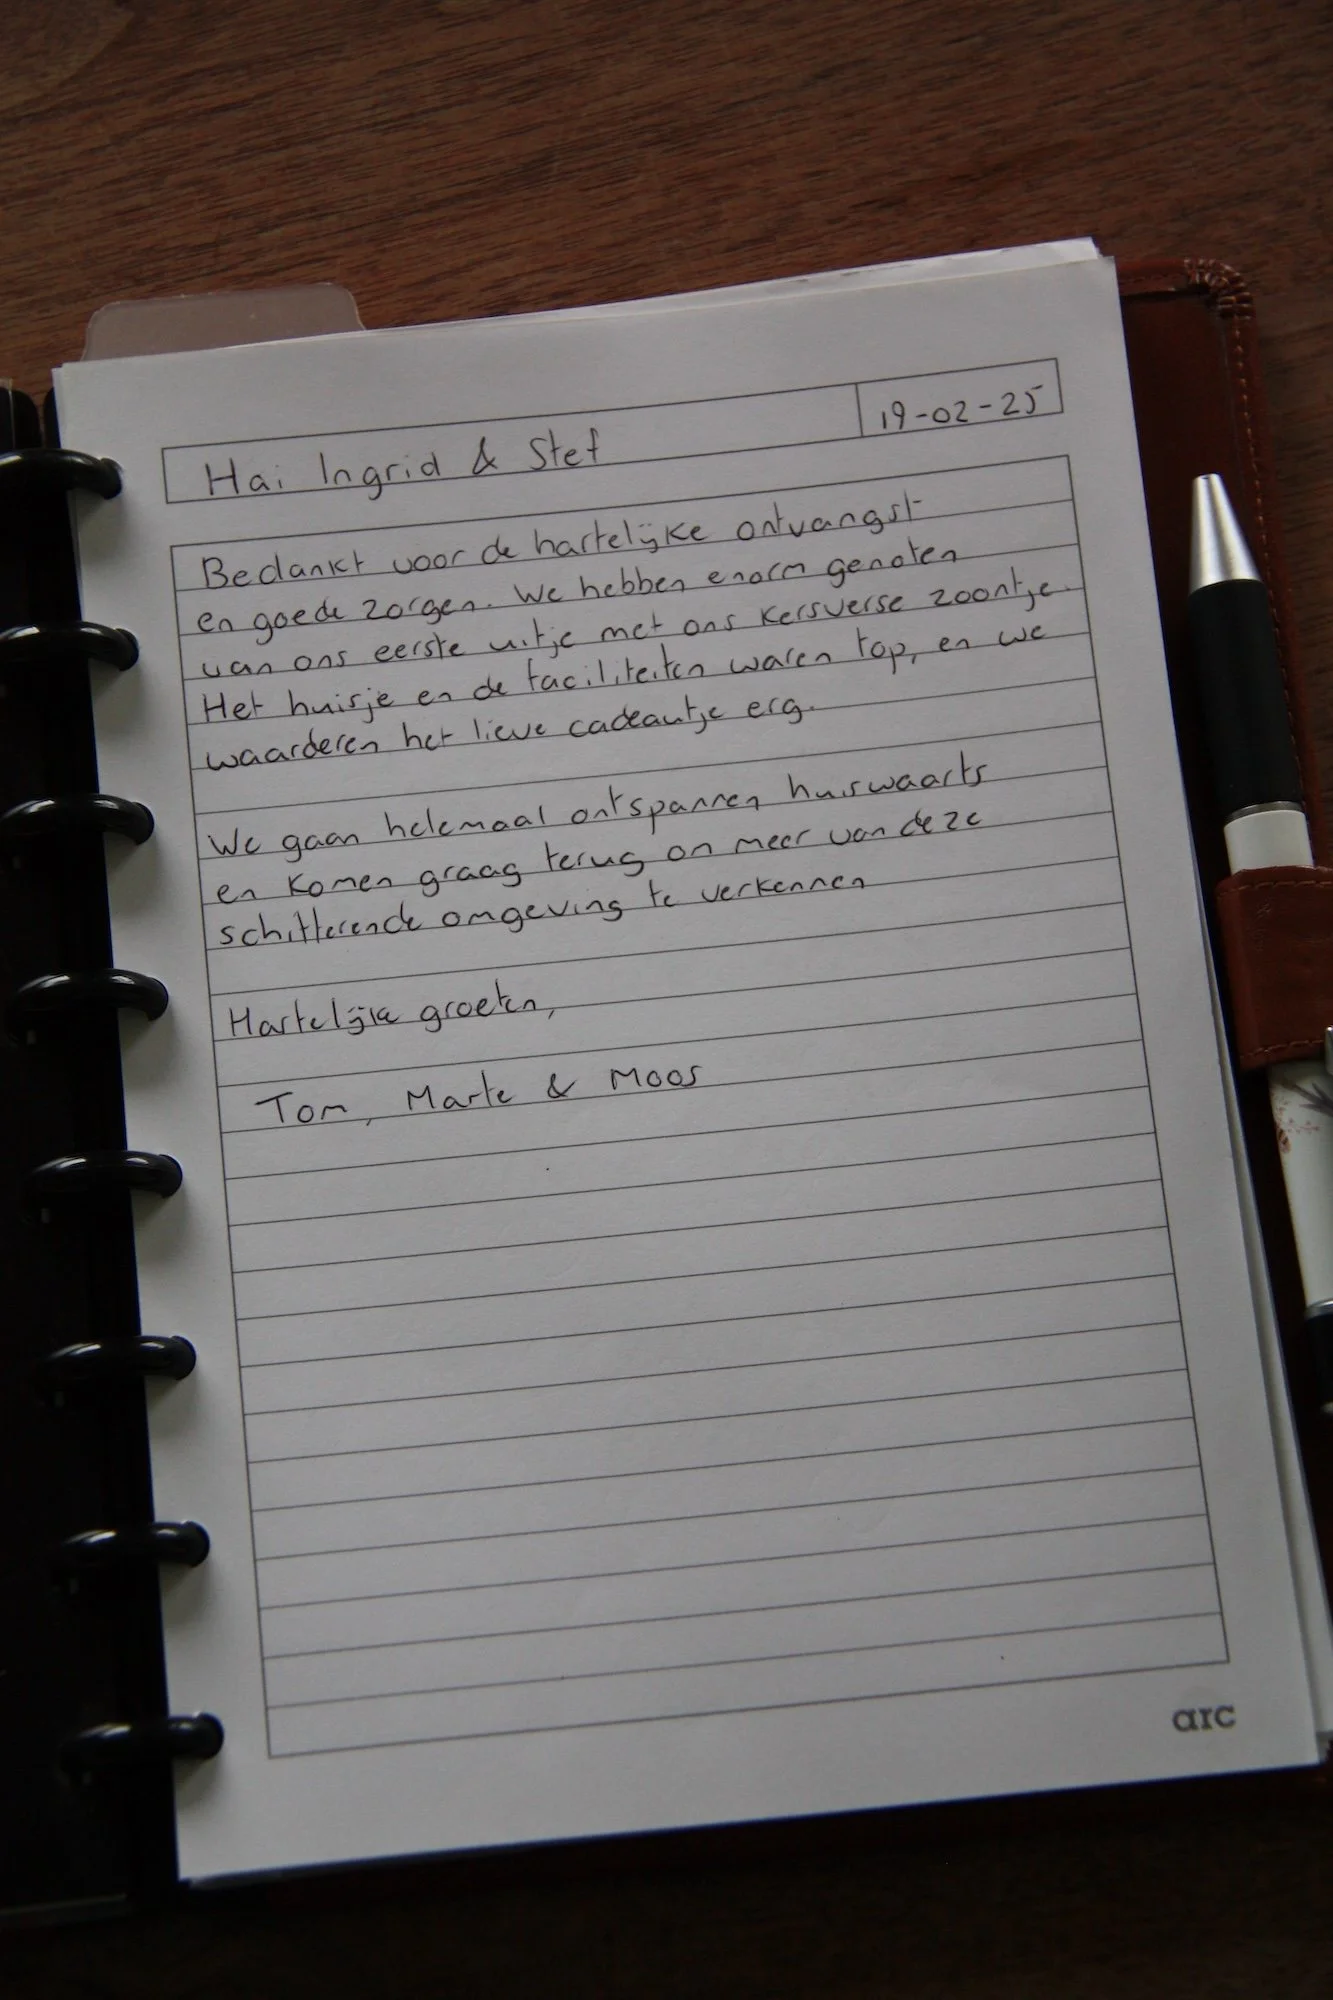 19-02-25
Hai Ingrid & Stef
Bedankt voor de hartelijke ontvangst
en goede zorgen. We hebben enorm genoten
van ons eerste uitje met ons kersverse zoontje.
Het huisje en de faciliteiten waren top, en we
waarderen het lieve cadeautje erg.
We gaan helemaal ontspannen huiswaarts
en komen graag terug om meer van deze
schitterende omgeving te verkennen
Hartelijke groeten,
Tom, Marte & Moos
arc